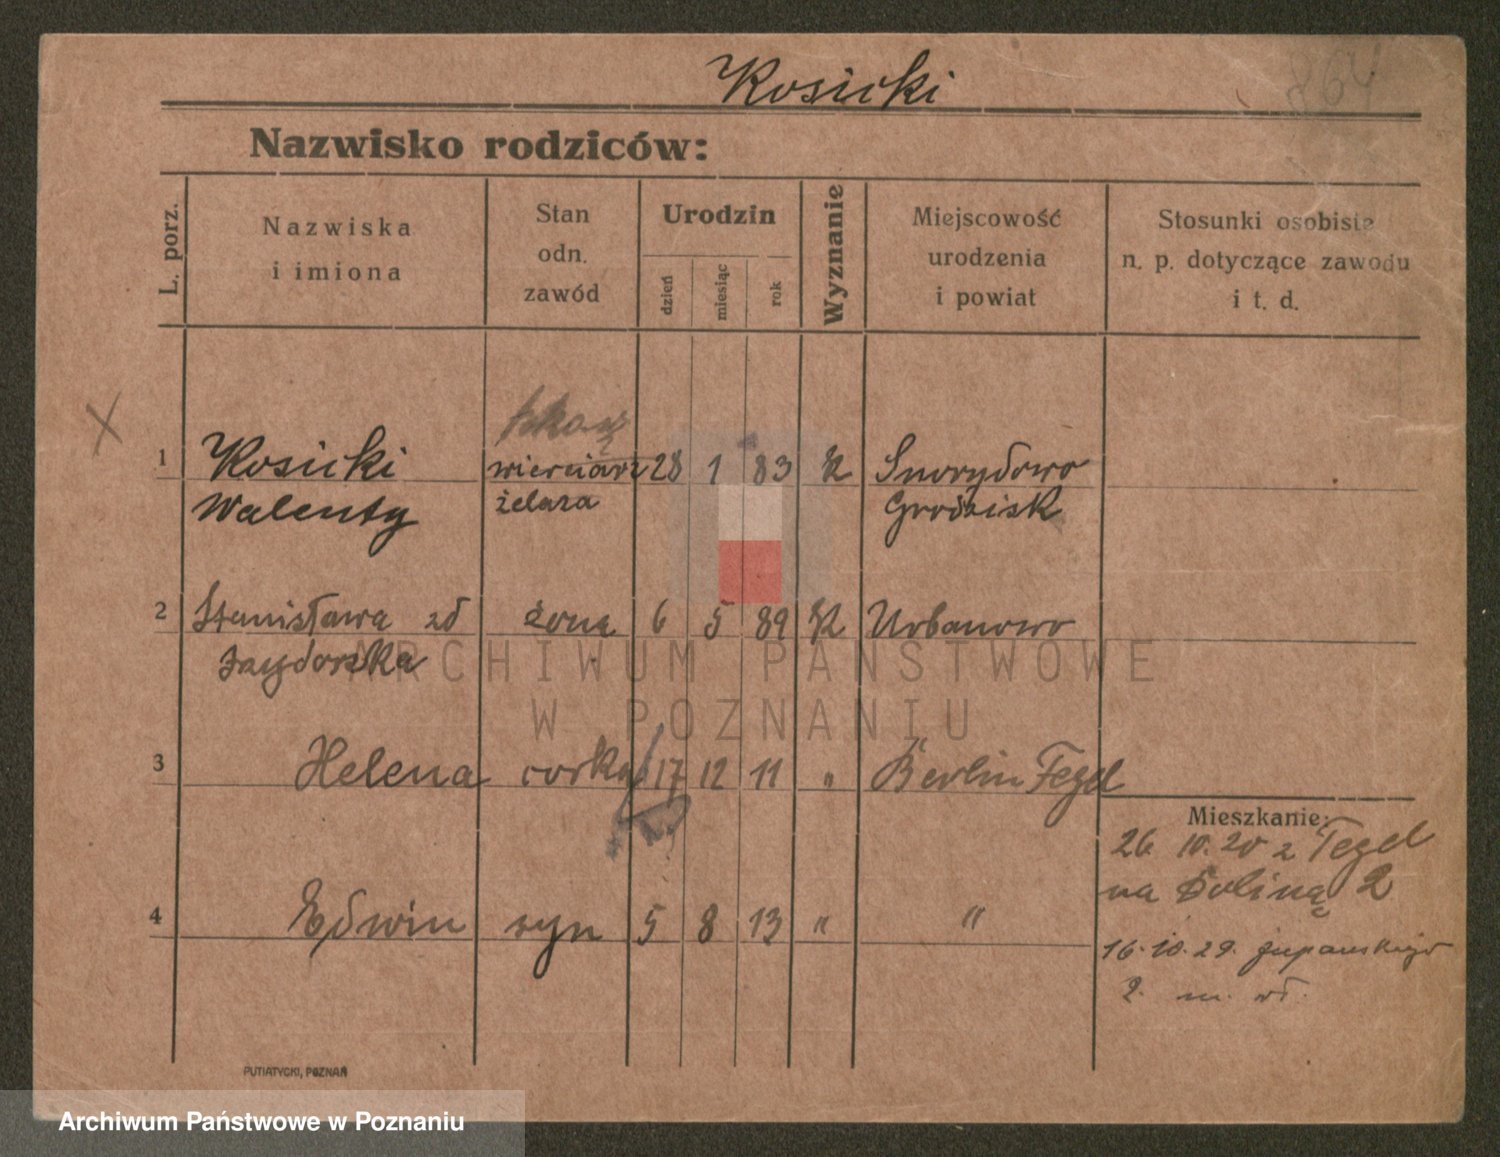 Kosicki
Nazwisko rodziców:
L. porz.
Nazwiska
i imiona
Stan
odn.
zawód
Urodzin
dzień
miesiąc
rok
Wyznanie
Miejscowość
urodzenia
i powiat
Stosunki osobiste
n. p. dotyczące zawodu
i t. d.
1 Kosicki wierciarz 28 1 83 K Snowydowo
Walenty żelaza Grodzisk
2 Stanisława zd żona 6 5 89 K Urbanowo
Izydorska
3 Helena corka 17 12 11 " Berlin Tegel
Mieszkanie:
26 10. 20 z Tegel
na Doliną 2
4 Edwin syn 5 8 13 " "
16. 10. 29. Żupańskiego
2. m. wł.
PUTIATYCKI, POZNAŃ
ARCHIWUM PAŃSTWOWE
W POZNANIU
Archiwum Państwowe w Poznaniu